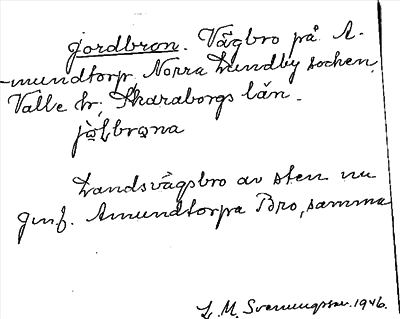 Jordbron. Vägbro på A-
mundtorp, Norra Lundby socken,
Valle hr, Skaraborgs län.
jo̠ɫbrǫna
Landsvägsbro av sten nu
Jmf. Amundtorpa Bro, samma
L. M. Svenungsson. 1946.